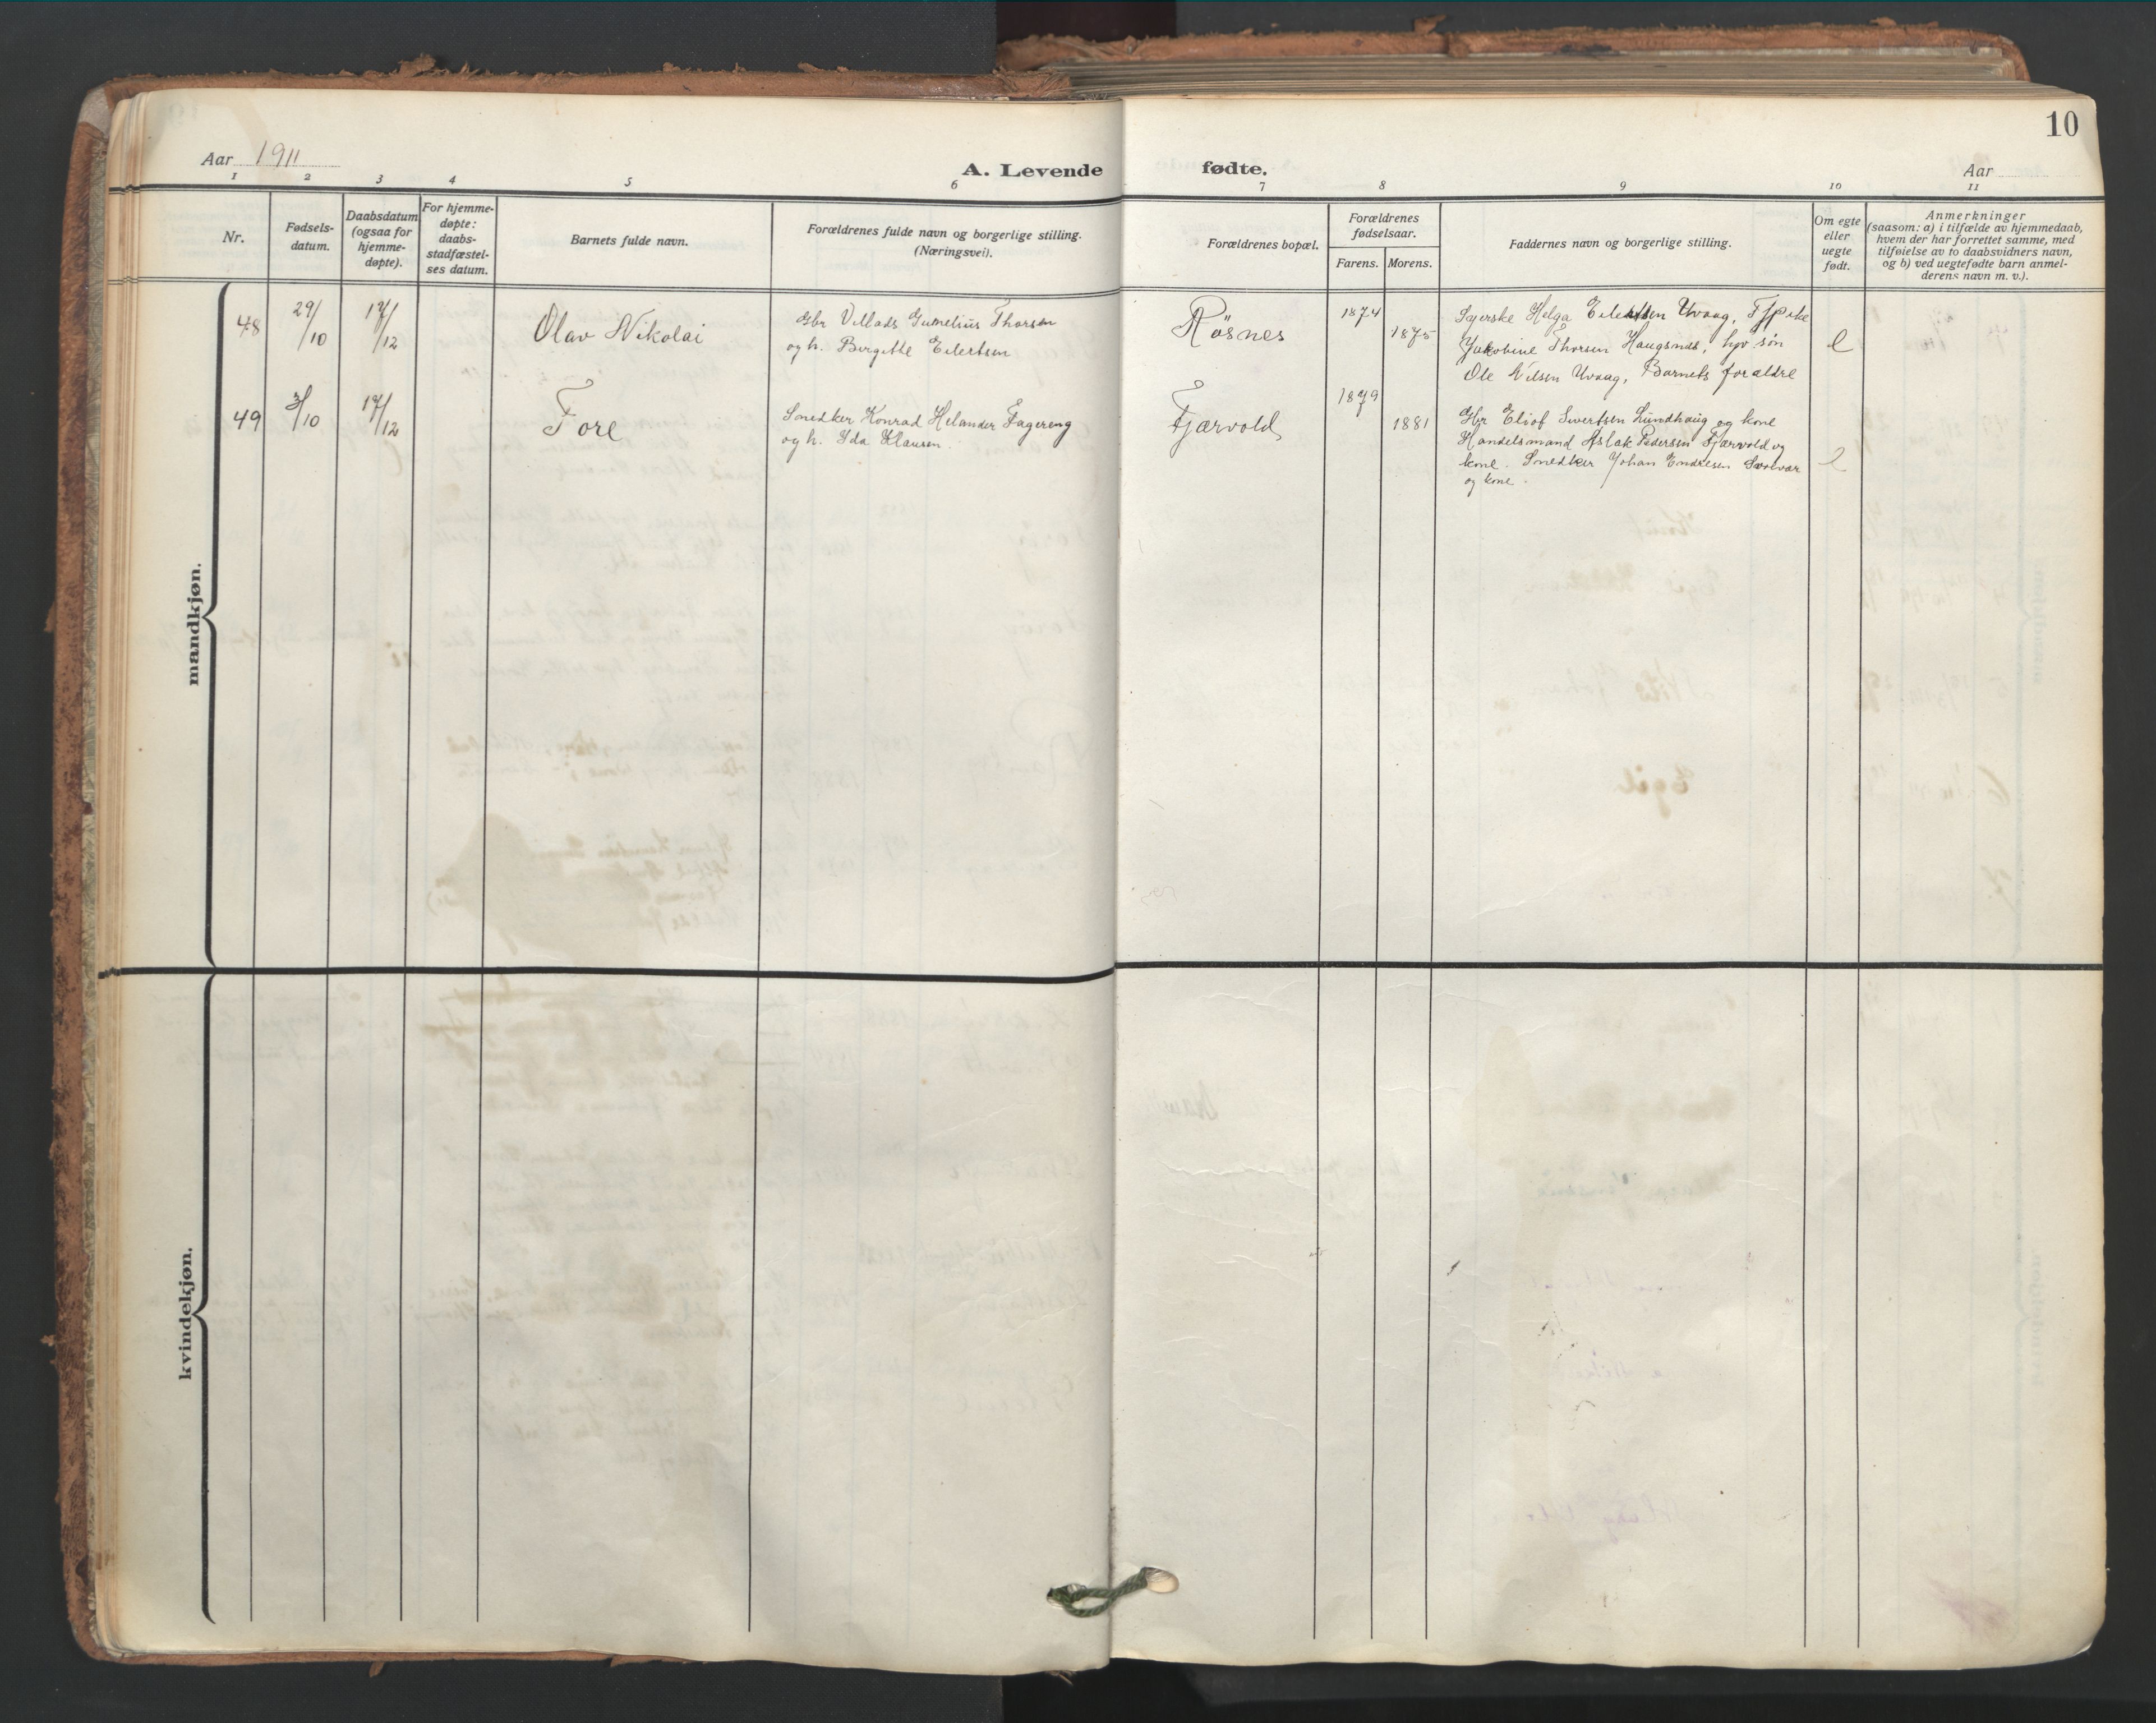 10
Aar 1911
A. Levende fødte.
Aar
1 2 3 4 5 6 7 8 9 10 11
Nr.
Fødsels-
datum.
Daabsdatum
(ogsaa for
hjemme-
døpte).
For hjemme-
døpte:
daabs-
stadfæstel-
ses datum.
Barnets fulde navn.
Forældrenes fulde navn og borgerlige stilling.
(Næringsvei).
Forældrenes bopæl.
Forældrenes
fødselsaar.
Farens. Morens.
Faddernes navn og borgerlige stilling.
Om egte
eller
uegte
født.
Anmerkninger
(saasom: a) i tilfælde av hjemmedaab,
hvem der har forrettet samme, med
tilføielse av to daabsvidners navn,
og b) ved uegtefødte barn anmel-
derens navn m. v.).
mandkjøn.
48
29/10
17/12
Olav Nikolai
Gbr Villads Gumelius Thorsen
og h. Birgitte Eilertsen
Rösnes
1874
1875
Syerske Helga Eilertsen Uvaag,
Jakobine Thorsen Haugsnes,
Ole Nilsen Uvaag, Barnets forældre
e
49
3/10
17/12
Tore
Snedker Konrad Helander Fagereng
og h. Ida Klausen.
Fjærvold
1879
1881
Gbr Eliof Sivertsen Lundhaug og kone
Handelsmand Aslak Pedersen Fjærvold og
kone. Snedker Johan Endresen Svolvær
og kone.
e
kvindekjøn.